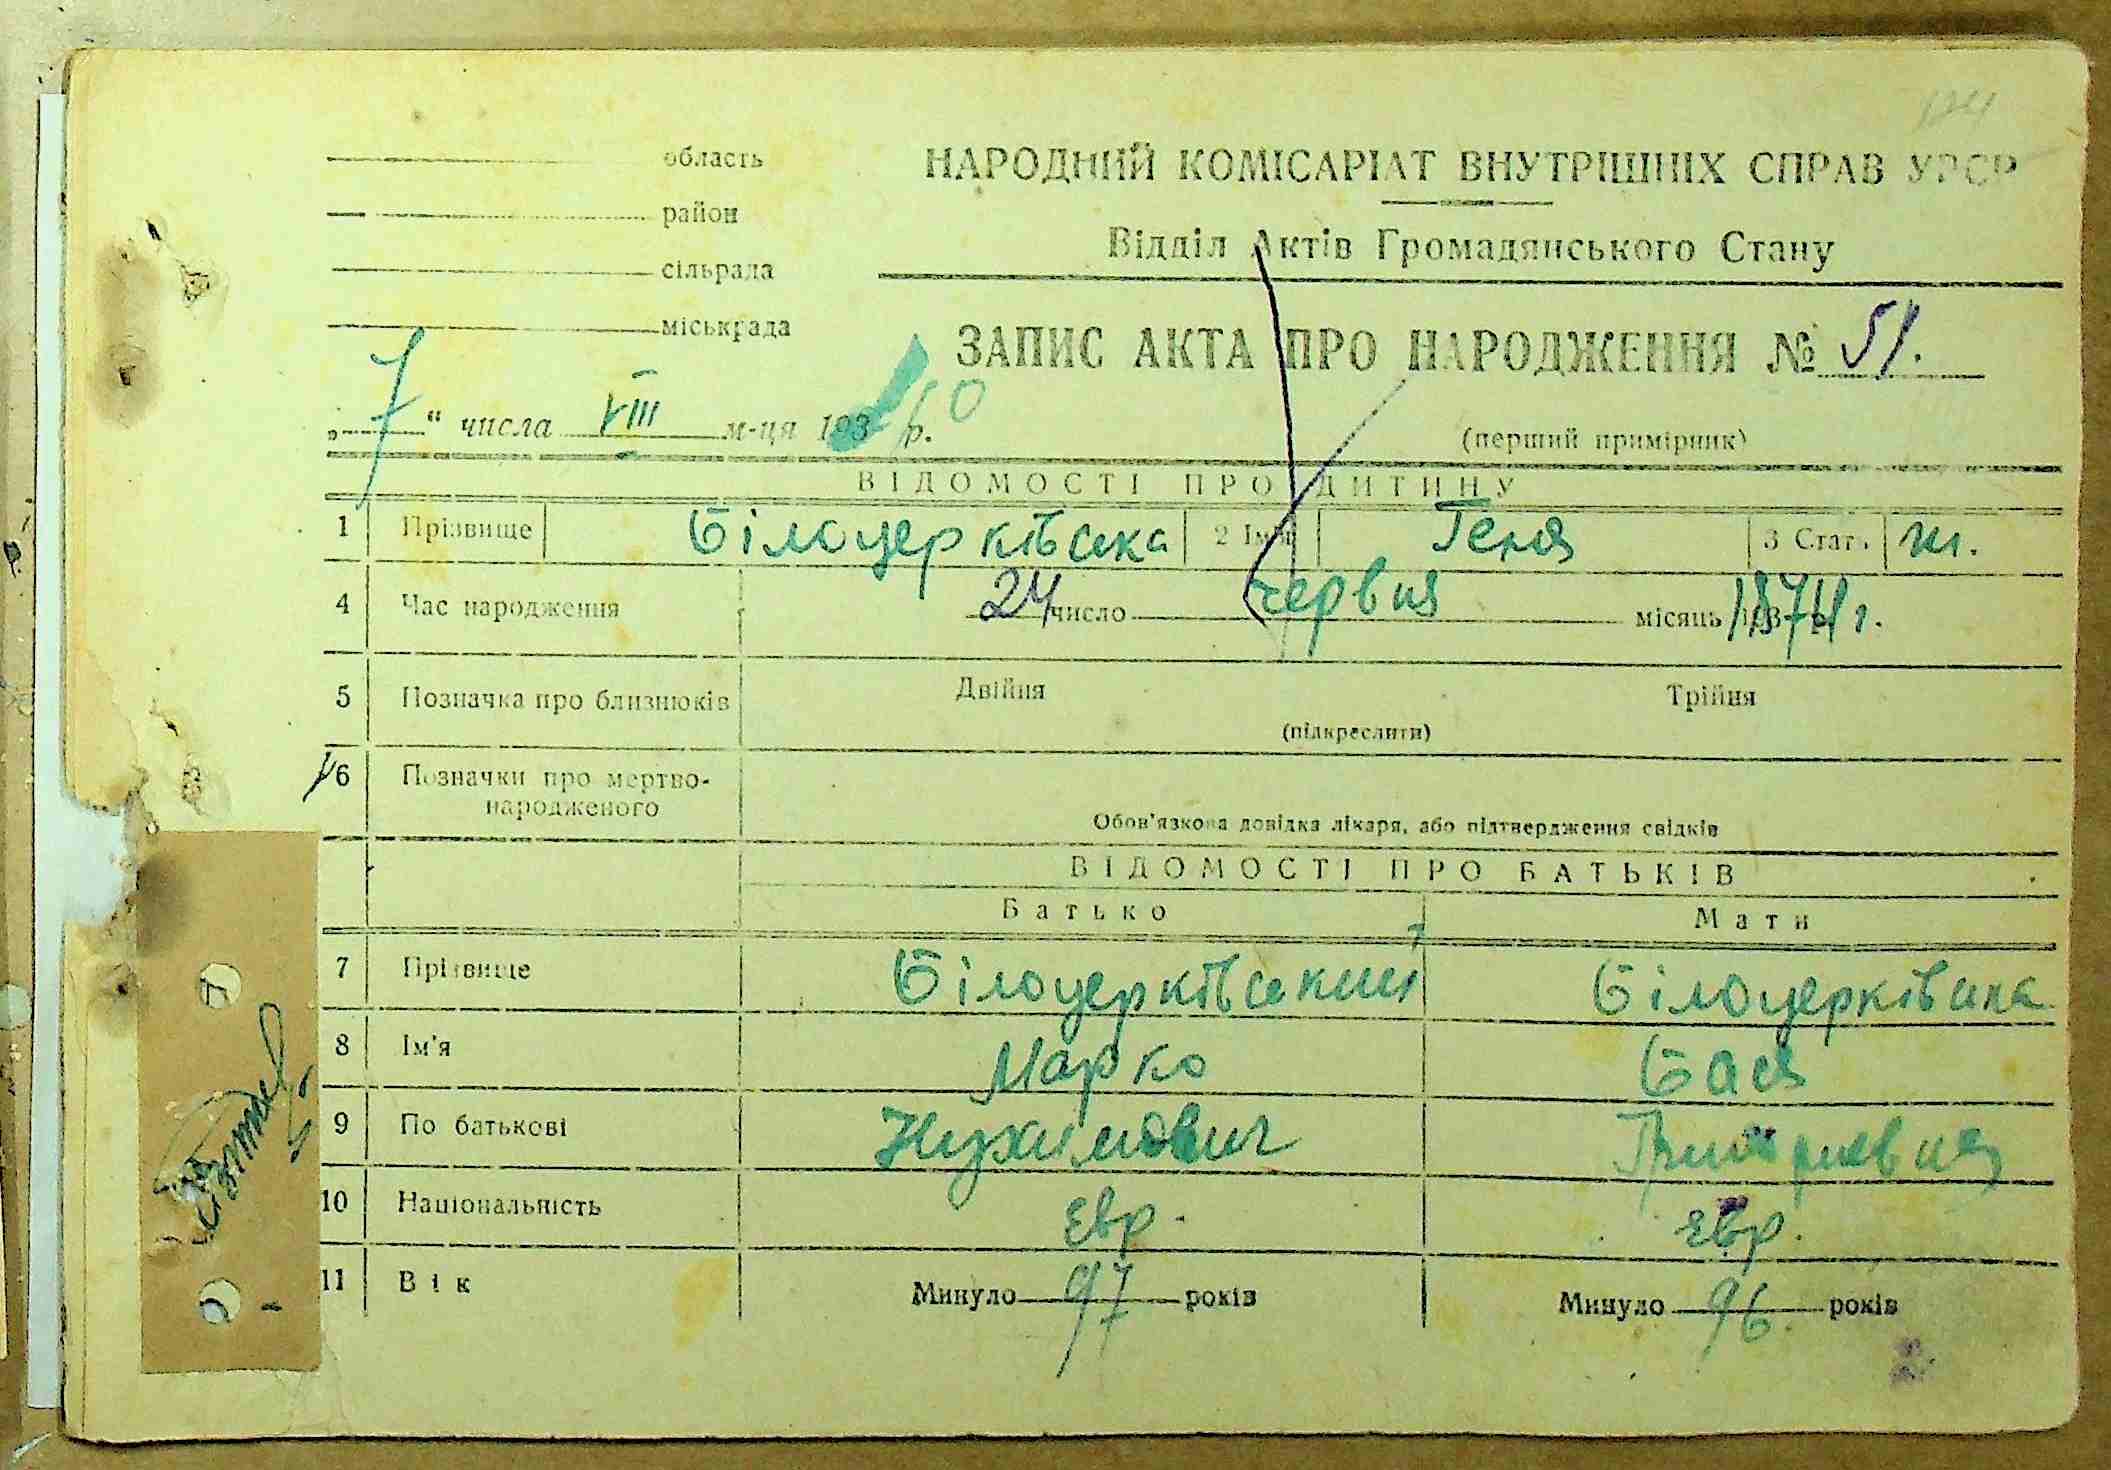 124
область
НАРОДНИЙ КОМІСАРІАТ ВНУТРІШНІХ СПРАВ УРСР
район
Відділ Актів Громадянського Стану
сільрада
міськрада
ЗАПИС АКТА ПРО НАРОДЖЕННЯ № 51.
„7“ числа VIII м-ця 193 р. 0
(перший примірник)
ВІДОМОСТІ ПРО ДИТИНУ
1 Прізвище Білоцерківська 2 Ім'я Геня 3 Стать ж.
4 Час народження 24 число червня місяць 1874 г.
5 Позначка про близнюків Двійня Трійня
(підкреслити)
6 Позначки про мертво-
народженого
Обов'язкова довідка лікаря, або підтвердження свідків
ВІДОМОСТІ ПРО БАТЬКІВ
Батько Мати
7 Прізвище Білоцерківський Білоцерківська
8 Ім'я Марко Бася
9 По батькові Нухимович
10 Національність Євр. Євр.
11 Вік Минуло 97 років Минуло 96 років